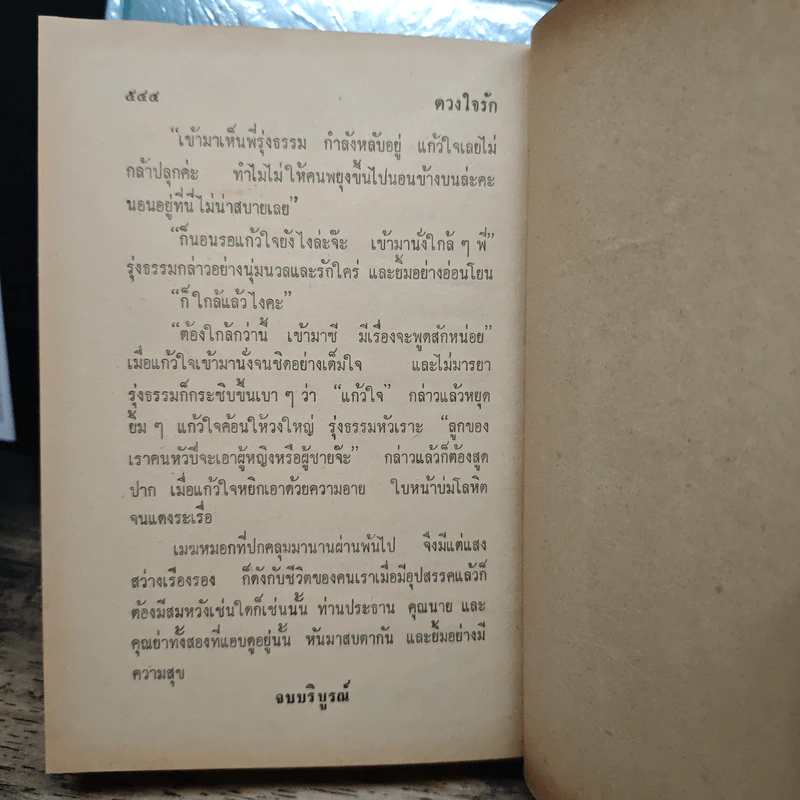 ๕๔๔ ดวงใจรัก
“เข้ามาเห็นพี่รุ่งธรรม กำลังหลับอยู่ แก้วใจเลยไม่
กล้าปลุกค่ะ ทำไมไม่ให้คนพยุงขึ้นไปนอนข้างบนล่ะคะ
นอนอยู่ที่นี่ไม่น่าสบายเลย”
“ก็นอนรอแก้วใจยังไงล่ะจ๊ะ เข้ามานั่งใกล้ ๆ พี่”
รุ่งธรรมกล่าวอย่างนุ่มนวลและรักใคร่ และยิ้มอย่างอ่อนโยน
“ก็ใกล้แล้วไงคะ”
“ต้องใกล้กว่านี้ เข้ามาซี มีเรื่องจะพูดสักหน่อย”
เมื่อแก้วใจเข้ามานั่งจนชิดอย่างเต็มใจ และไม่มารยา
รุ่งธรรมก็กระซิบขึ้นเบา ๆ ว่า “แก้วใจ” กล่าวแล้วหยุด
ยิ้ม ๆ แก้วใจค้อนให้วงใหญ่ รุ่งธรรมหัวเราะ “ลูกของ
เราคนหัวปีจะเอาผู้หญิงหรือผู้ชายจ๊ะ” กล่าวแล้วก็ต้องสูด
ปาก เมื่อแก้วใจหยิกเอาด้วยความอาย ใบหน้าบ่มโลหิต
จนแดงระเรื่อ
เมฆหมอกที่ปกคลุมมานานผ่านพ้นไป จึงมีแต่แสง
สว่างเรืองรอง ก็ดังกับชีวิตของคนเราเมื่อมีอุปสรรคแล้วก็
ต้องมีสมหวังเช่นใดก็เช่นนั้น ท่านประธาน คุณนาย และ
คุณย่าทั้งสองที่แอบดูอยู่นั้น หันมาสบตากัน และยิ้มอย่างมี
ความสุข
จบบริบูรณ์